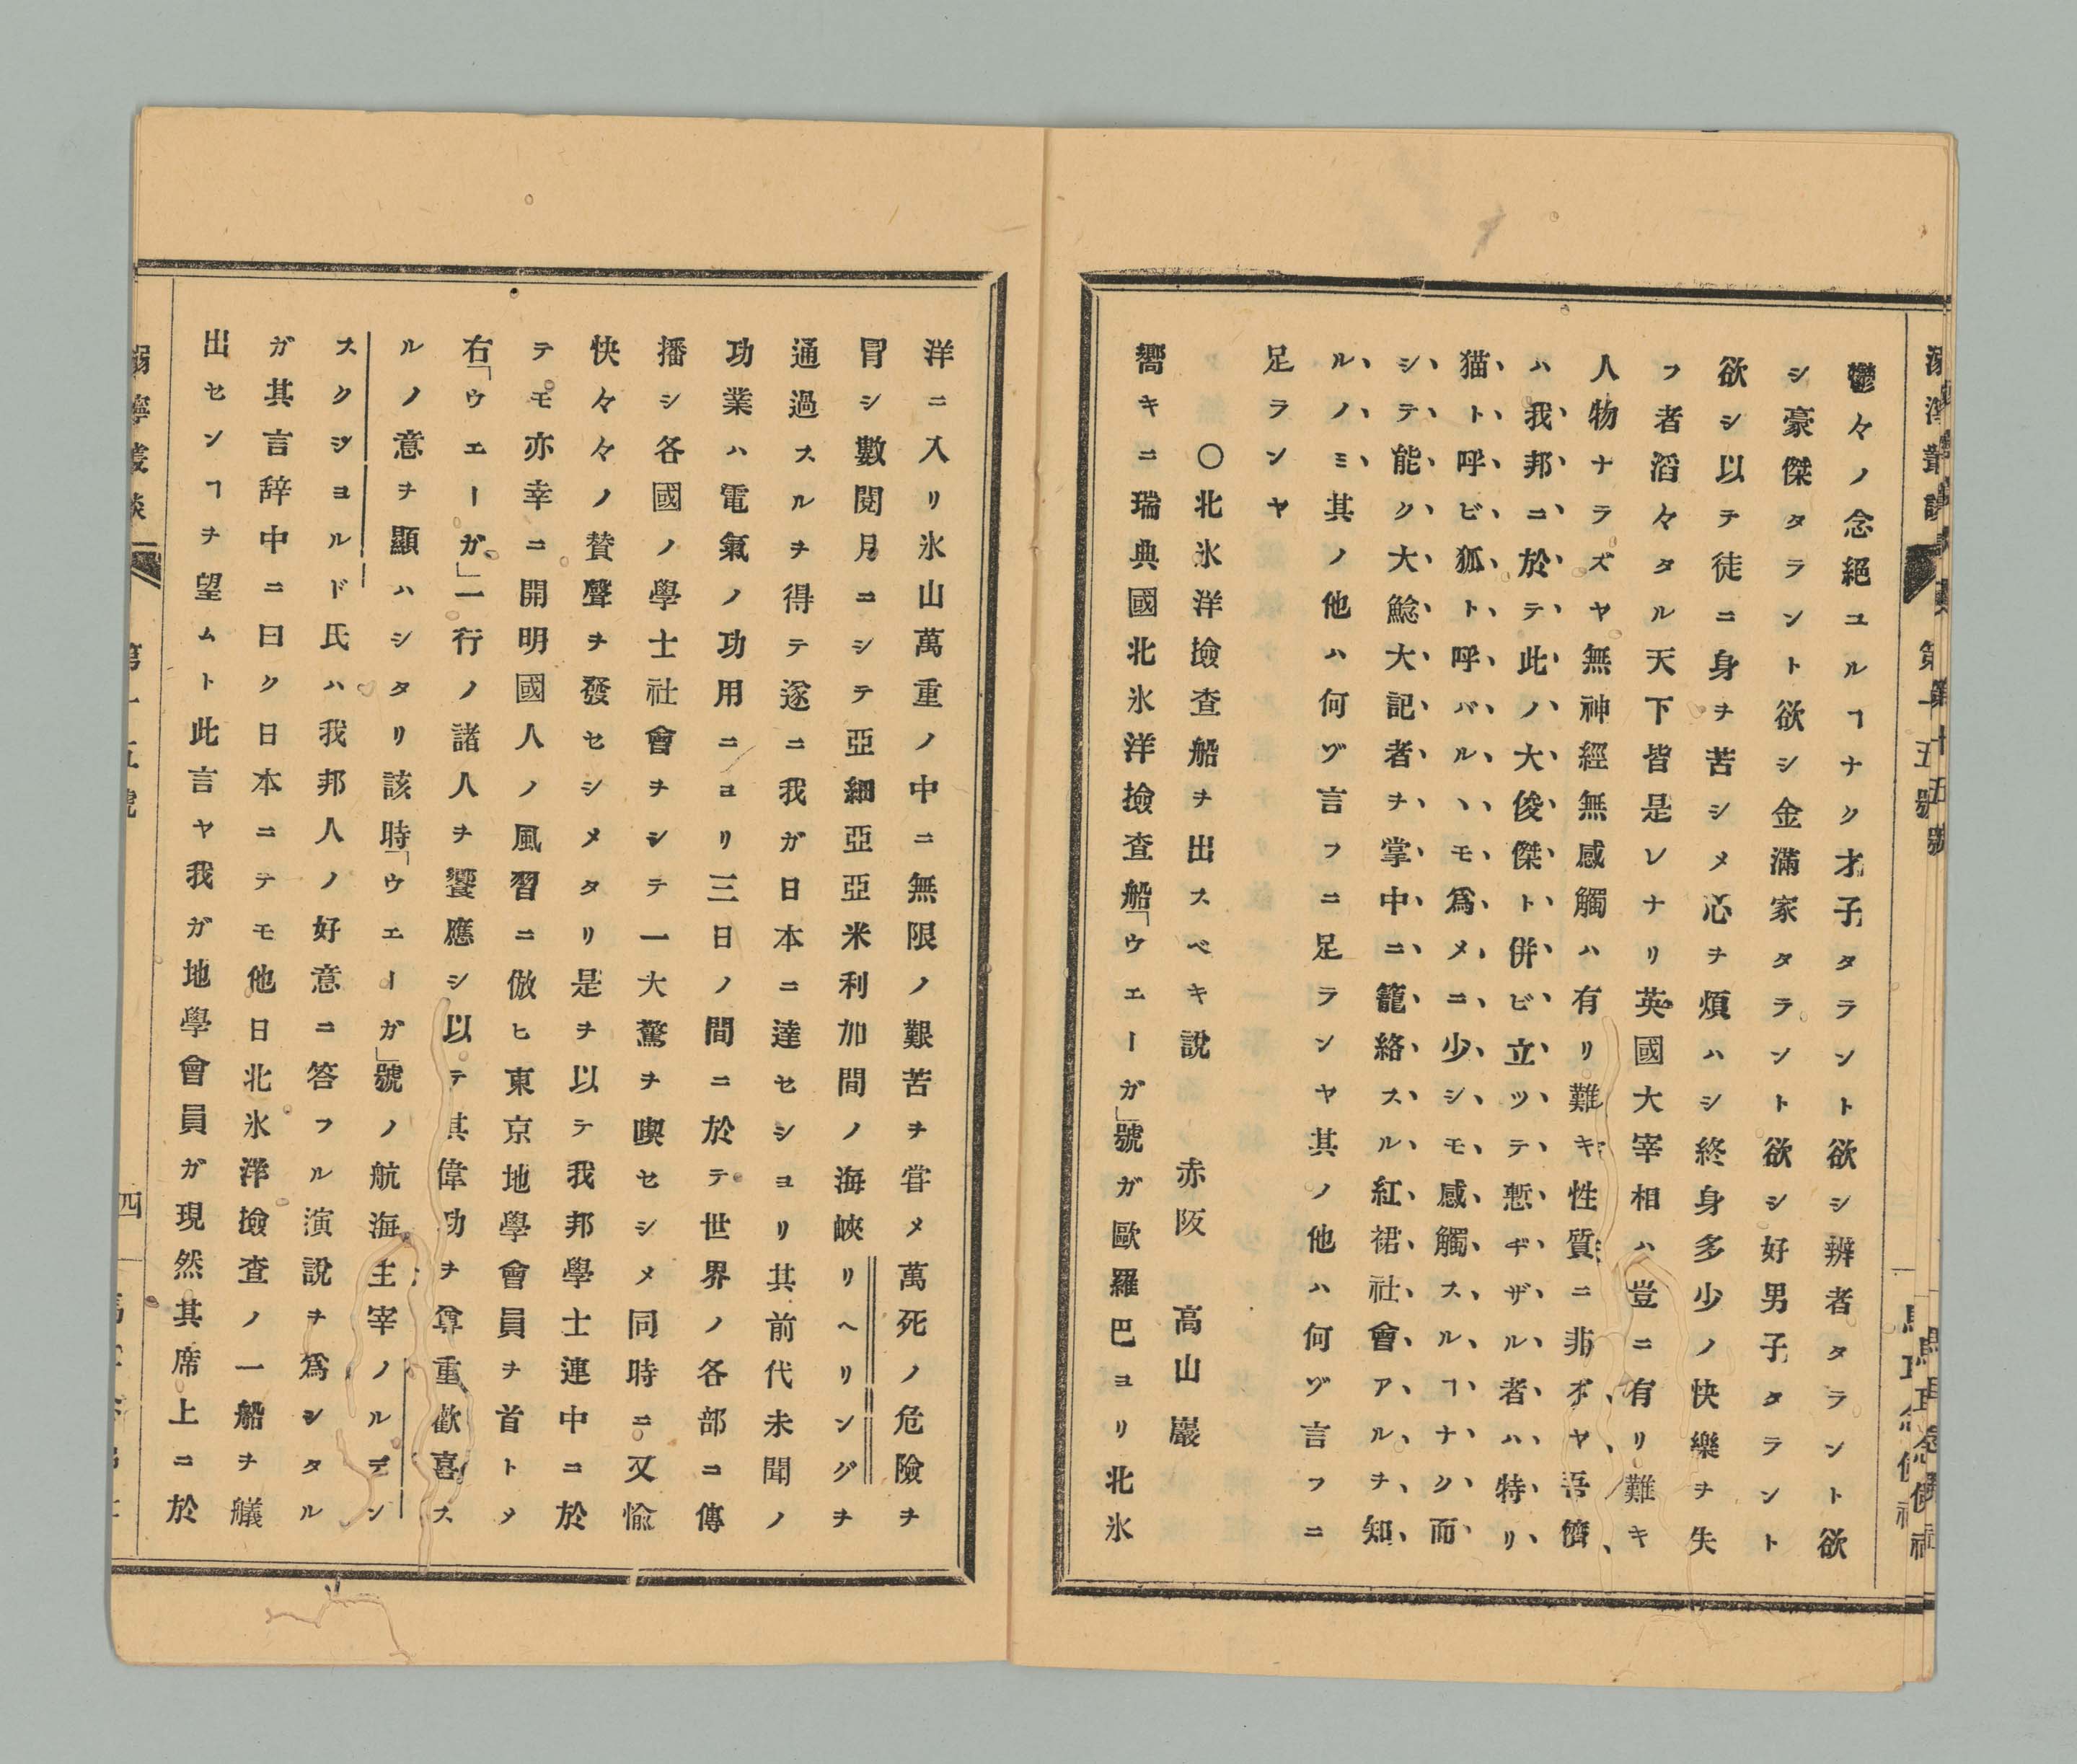 鬱々ノ念絕ユルヿナク才子タラント欲シ辨者タラント欲
シ豪傑タラント欲シ金滿家タラント欲シ好男子タラント
欲シ以テ徒ニ身ヲ苦シメ心ヲ煩ハシ終身多少ノ快樂ヲ失
フ者滔々タル天下皆是レナリ英國大宰相ハ豈ニ有リ難キ
人物ナラズヤ無神經無感觸ハ有リ難キ性質ニ非ズヤ吾儕
ハ我邦ニ於テ此ノ大俊傑ト併ビ立ツテ慙ヂザル者ハ特リ
猫ト呼ビ狐ト呼バルヽモ爲メニ少シモ感觸スルヿナク而
シテ能ク大鯰大記者ヲ掌中ニ籠絡スル紅裙社會アルヲ知
ルノミ其ノ他ハ何ヅ言フニ足ランヤ其ノ他ハ何ヅ言フニ
足ランヤ
○北氷洋撿査船ヲ出スベキ說 赤阪 高山巖
嚮キニ瑞典國北氷洋撿査船「ウエーガ」號ガ歐羅巴ヨリ北氷
洋ニ入リ氷山萬重ノ中ニ無限ノ艱苦ヲ甞メ萬死ノ危險ヲ
冒シ數閱月ニシテ亞細亞亞米利加間ノ海峽リヘリングヲ
通過スルヲ得テ遂ニ我ガ日本ニ達セシヨリ其前代未聞ノ
功業ハ電氣ノ功用ニヨリ三日ノ間ニ於テ世界ノ各部ニ傳
播シ各國ノ學士社會ヲシテ一大驚ヲ喫セシメ同時ニ又愉
快々々ノ賛聲ヲ發セシメタリ是ヲ以テ我邦學士連中ニ於
テモ亦幸ニ開明國人ノ風習ニ倣ヒ東京地學會員ヲ首トメ
右「ウエーガ」一行ノ諸人ヲ饗應シ以テ其偉功ヲ尊重歡喜ス
ルノ意ヲ顯ハシタリ該時「ウエーガ」號ノ航海主宰ノルデン
スクジヨルド氏ハ我邦人ノ好意ニ答フル演說ヲ爲シタル
ガ其言辞中ニ曰ク日本ニテモ他日北氷洋撿査ノ一船ヲ艤
出センヿヲ望ムト此言ヤ我ガ地學會員ガ現然其席上ニ於
第十五號
四